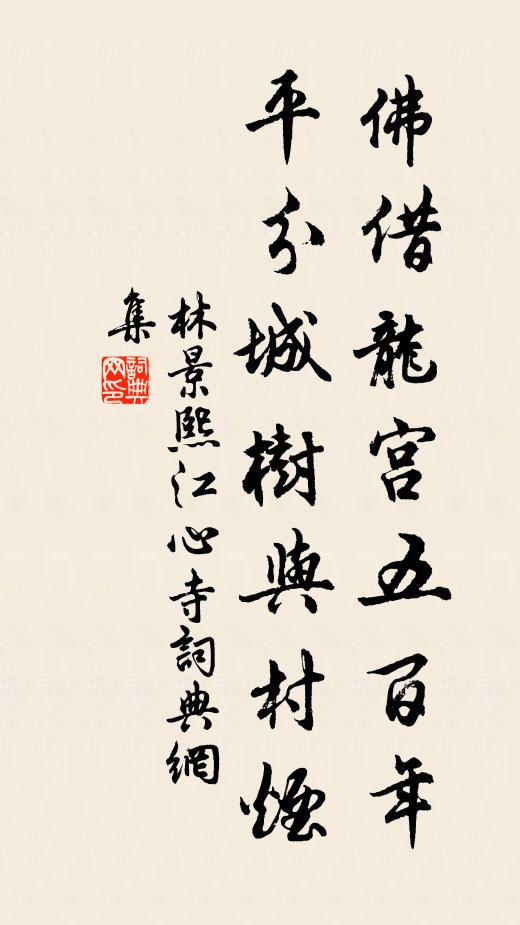 佛借龍宮五百年
平分城樹與村煙
林景熙江心寺詞典網
集
詞典網印